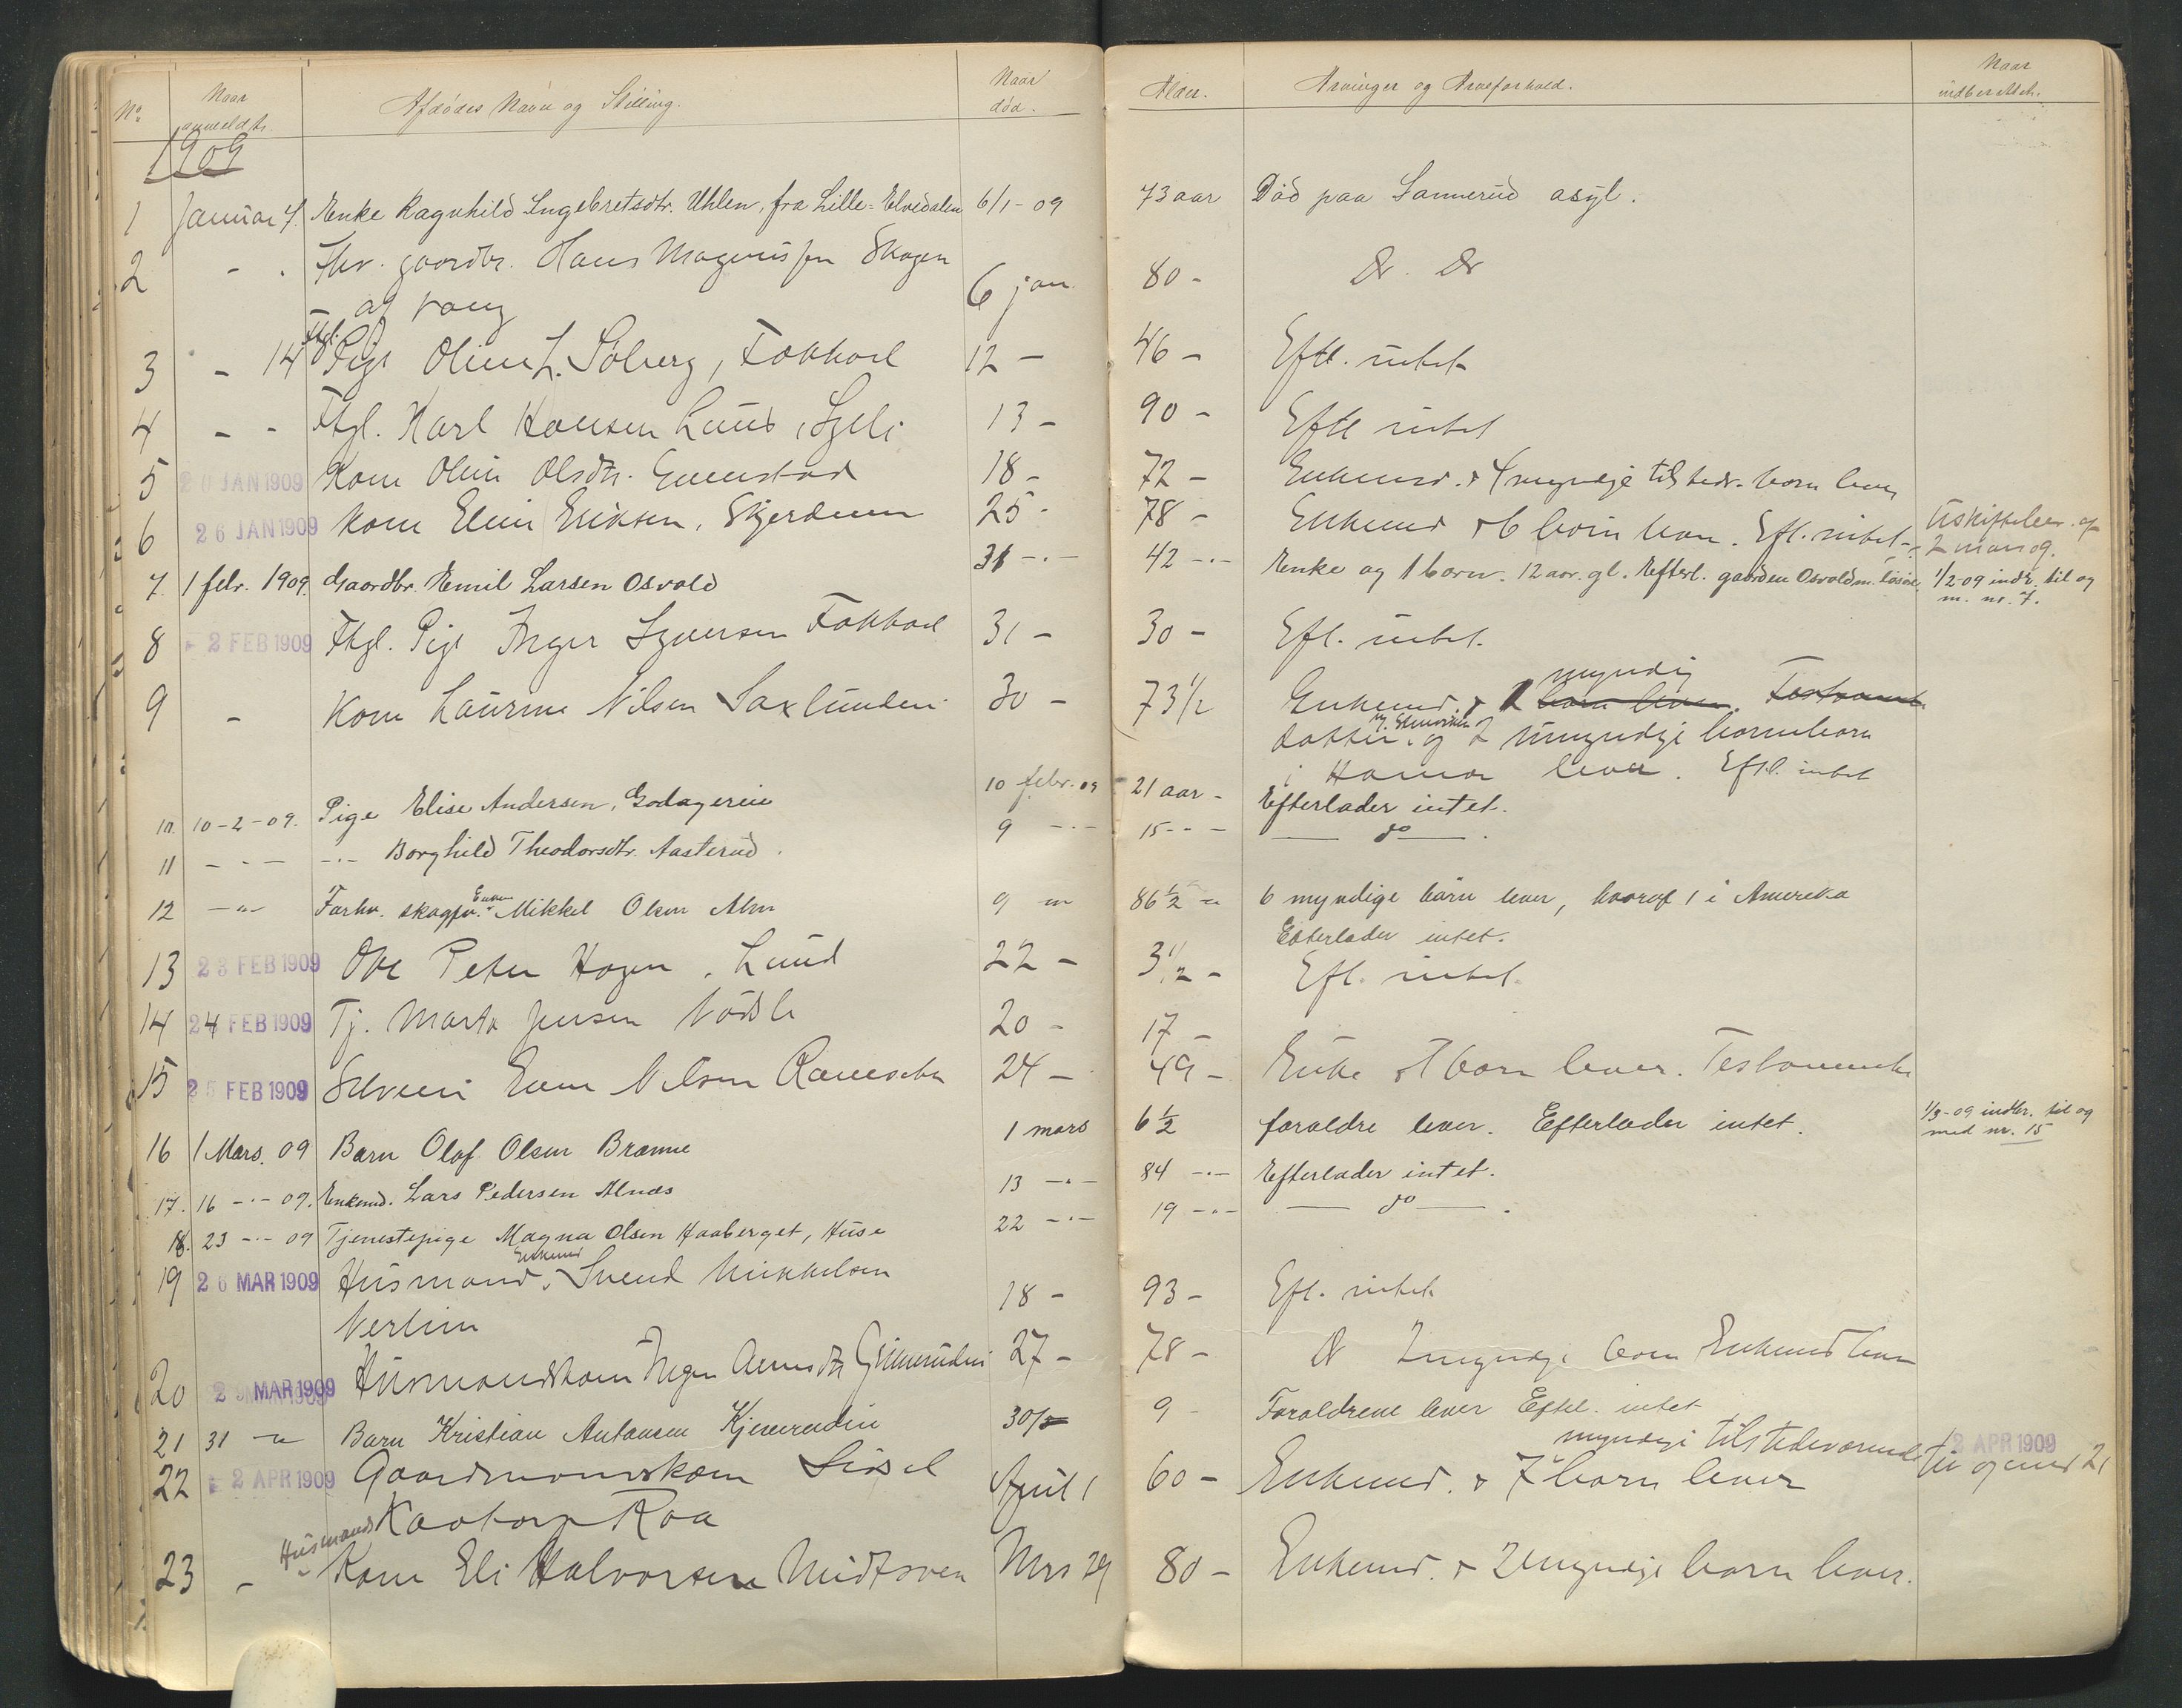 No Naar anmeldt. Afdødes Navn og Stilling. Naar død. Alder. Arvinger og Arveforhold. Naar indberettet.
1909
1 Januar 7. Enke Ragnhild Ingebretsdtr. Uhlen, fra Lille-Elvedalen 6/1-09 73 aar Død paa Sannerud asyl.
2 - . Fhv. gaardbr. Hans Magnussen Skogen 6 jan. 80 - Do Do
af Vang
3 - 14 Fhgl. Pige Oline L. Solberg, Fokhol 12 - 46 - Eftl. intet
4 - - Fhgl. Karl Hansen Lund, 13 - 90 - Eftl intet
5 JAN 1909 Kone Olin Olsdtr. 18 - 72 - Enkemd. & 4 myndige tilstedv. born lever
6 26 JAN 1909 Kone Elin Eriksen, Skjerden 25 - 78 - Enkemd & 6 born lever. Efl. intet - 2 mars 09.
7. 1 febr. 1909. Gaardbr. Emil Larsen Osvold 31 -.- 42 -.- Enke og 1 barn. 12 aar. gl. Efterl. gaarden Osvold m. løsøre. 1/2-09 indb. til og
m. nr. 7.
8 2 FEB 1909 Fhgl. Pige Inger Syversen Fokhol 31 - 30 - Efl. intet.
9 - Kone Laurine Nilsen Saxlunden 30 - 73 1/2 Enkemd. & 1 myndig
datter og 2 umyndige borneborn
i Hamar lever. Eftl. intet
10. 10-2-09. Pige Elise Andersen, Godagereie 10 febr. 09 21 aar - Efterlader intet.
11 - - - -.- Borghild Theodorsdtr. Aasterud. 9 -.- 15 - - - do - .
12 -"- Forhv. skogfv. Enkem. Mikkel Olsen Alm 9 " 86 1/2 " 6 myndige børn lever, hvoraf 1 i Amerika
Efterlader intet.
13 23 FEB 1909 Ole Peter Hagen, Lund 22 - 3 1/2 - Efl. intet.
14 24 FEB 1909 Tj. Marta Jensen 20 - 17 -
15 25 FEB 1909 Selveier Even Nilsen 24 - 49 - Enke & 7 born lever. Testamente
16 1 Mars. 09 Barn Olaf Olsen Brænne 1 mars 6 1/2 foraldre lever. Efterlader intet. 1/3-09 indbr. til og
med nr. 15
17. 16 -.- 09. Enkemd. Lars Pedersen Alnæs 13 -.- 84 -.- Efterlader intet.
18. 23 -.- 09 Tjenestepige Magna Olsen Haaberget, Huse 22 -.- 19 -.- - do - .
19 26 MAR 1909 Husmand, Enkemd Svend Mikkelsen 18 - 93 - Efl. intet
20 2 MAR 1909 Husmandskone Inger 27 - 78 - Do 2 myndige born Enkemd lever
21 31 " Barn Kristian Antonsen Kjeverudin 30/3 9 - Foraldrene lever Eftl. intet
22 2 APR 1909 Gaardmandskone Sissel April 1 60 - Enkemd. & 7 myndige tilstedeværende born lever 2 APR 1909
til og med 21
Kaatorp Roa
23 - Husmands Kone Eli Halvorsen Mrs 29 80 - Enkemd. & 2 myndige born lever.